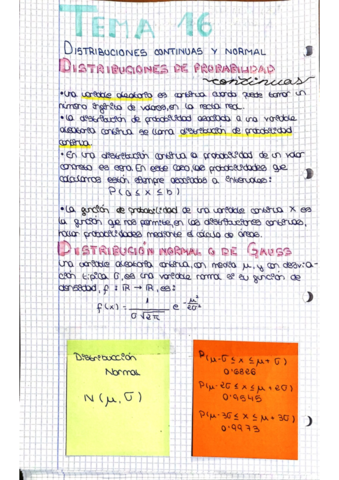 TEMA 16
DISTRIBUCIONES CONTINUAS Y NORMAL
DISTRIBUCIONES DE PROBABILIDAD
continuas
•Una variable aleatoria es continua cuando puede tomar un
número infinito de valores, en la recta real.
•La distribución de probabilidad asociada a una variable
aleatoria continua se llama distribución de probabilidad
continua.
•En una distribución continua la probabilidad de un valor
concreto es cero. En este caso, las probabilidades que
calculamos están siempre asociadas a intervalos:
P(a ≤ x ≤ b)
•La función de probabilidad de una variable continua X es
la función que nos permite, en las distribuciones continuas,
hallar probabilidades mediante el cálculo de áreas.
DISTRIBUCIÓN NORMAL O DE GAUSS
Una variable aleatoria continua, con media μ, y con desvia-
ción típica σ, es una variable normal si su función de
densidad, f: ℝ → ℝ, es:
f(x) = 1/(σ√2π) e^(-μ²/2σ²)
Distribución
Normal
N(μ, σ)
P(μ-σ ≤ x ≤ μ+σ)
0.6826
P(μ-2σ ≤ x ≤ μ+2σ)
0.9545
P(μ-3σ ≤ x ≤ μ+3σ)
0.9973